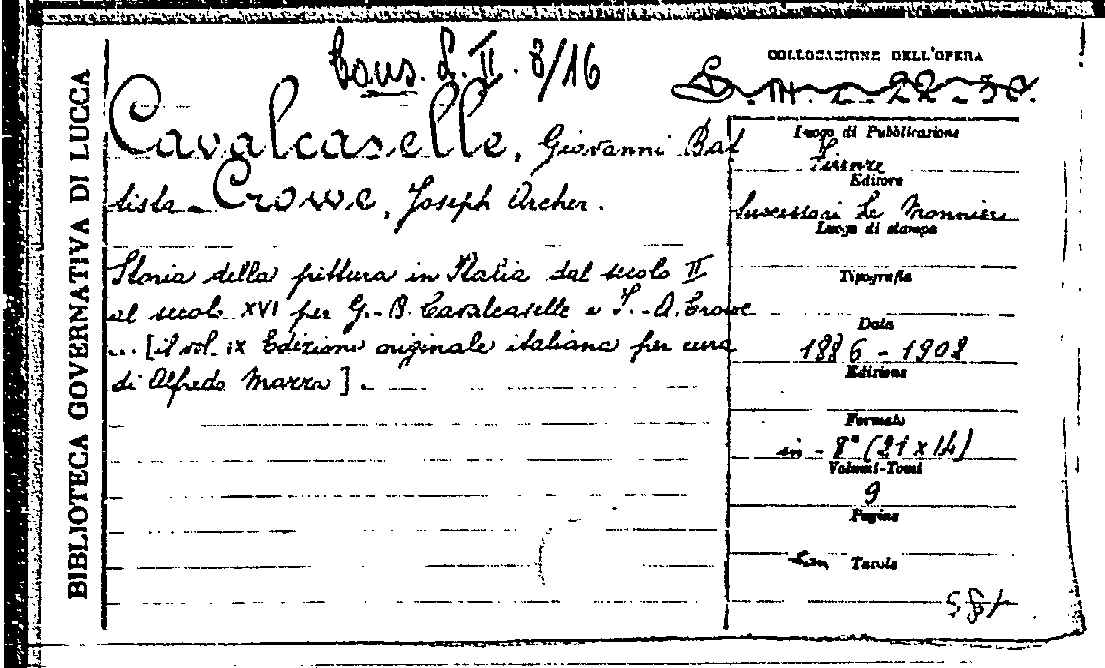 BIBLIOTECA GOVERNATIVA DI LUCCA
Cons. L. II. 8/16
Cavalcaselle, Giovanni Bat
tista – Crowe, Joseph Archer.
Storia della pittura in Italia dal secolo II
al secolo XVI per G.-B. Cavalcaselle e J.-A. Crowe
... [il vol. IX Edizione originale italiana per cura
di Alfredo Mazza].
COLLOCAZIONE DELL'OPERA
Luogo di Pubblicazione
Firenze
Editore
Successori Le Monnier
Luogo di stampa
Tipografia
Data
1886 - 1902
Edizione
Formato
in - 8° (21 x 14)
Volumi-Tomi
9
Pagine
Tavole